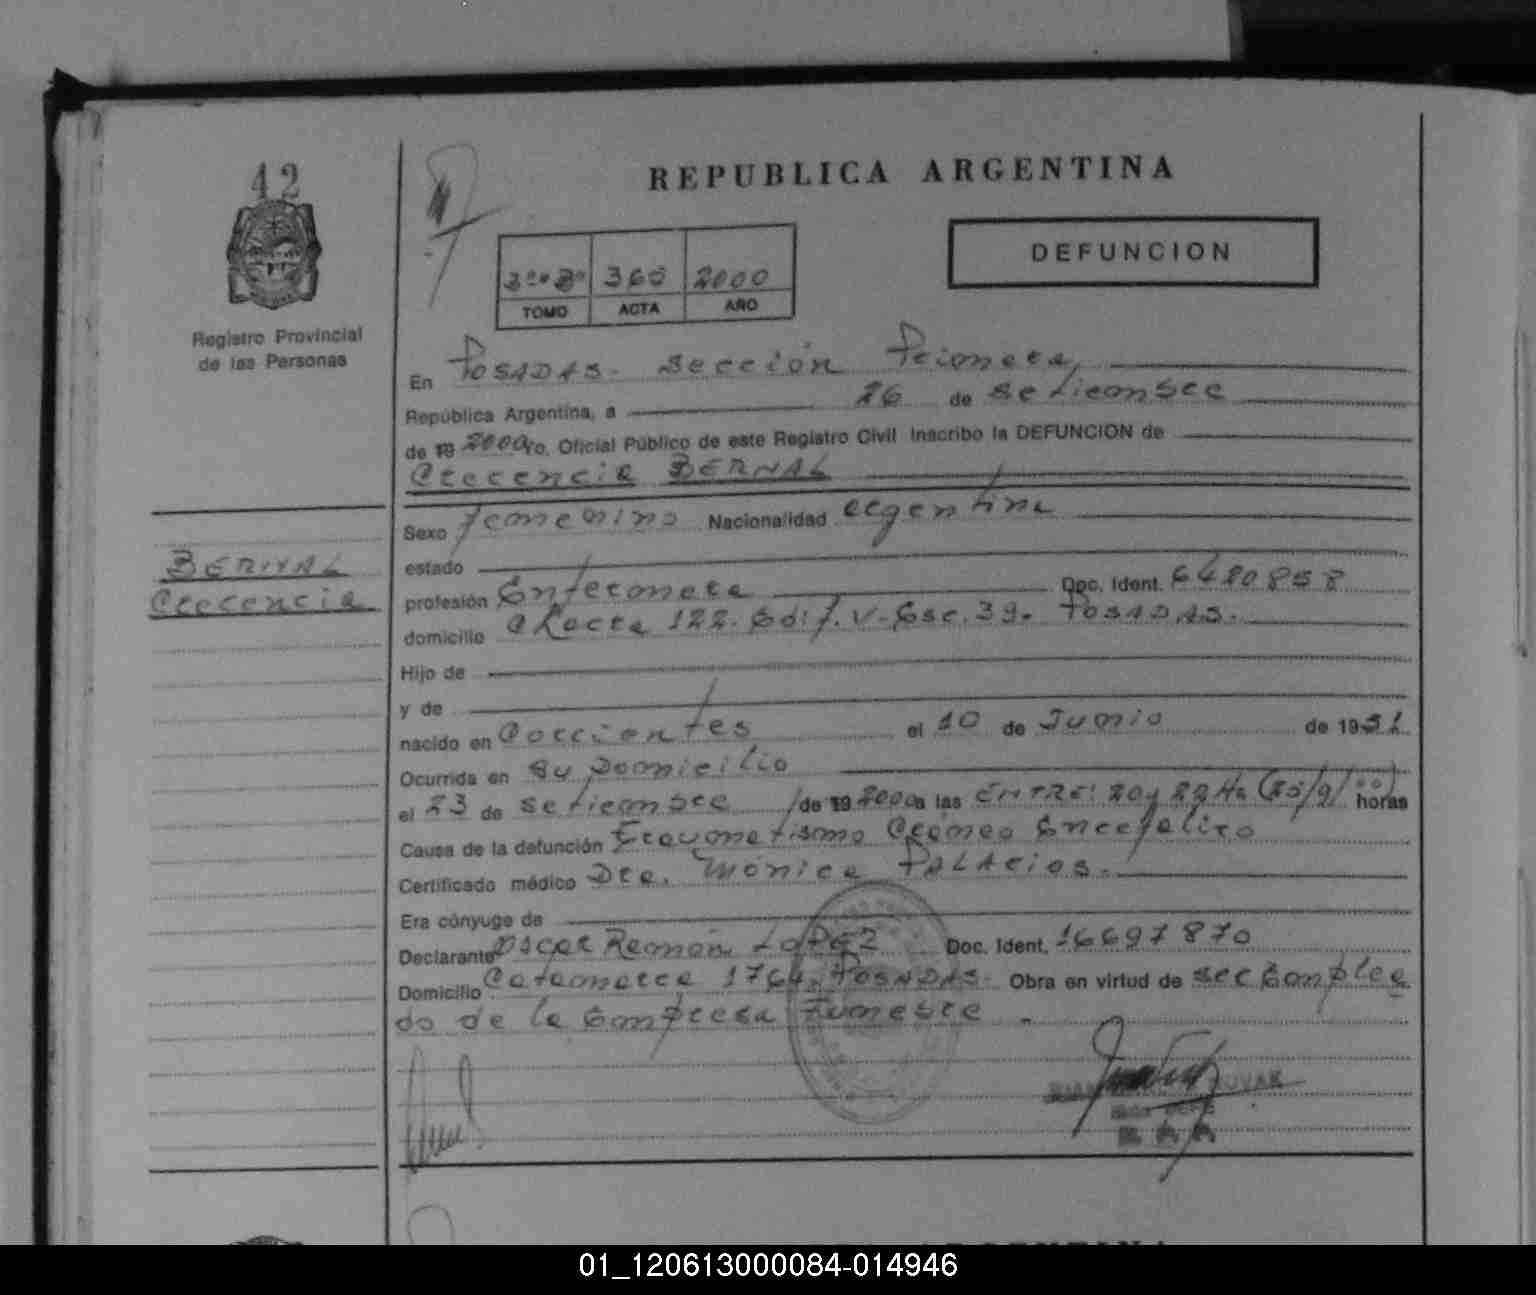 42
REPUBLICA ARGENTINA
DEFUNCION
365 2000
TOMO ACTA AÑO
Registro Provincial
de las Personas
En POSADAS. Sección Primera,
República Argentina, a 26 de setiembre
de 19 2000 Yo, Oficial Público de este Registro Civil Inscribo la DEFUNCION de
Crecencia BERNAL
BERNAL
Crecencia
Sexo femenino Nacionalidad argentina
estado
profesión Enfermera Doc. Ident. 6480858
domicilio Chacra 122. Edif. V. Esc. 39. POSADAS.
Hijo de
y de
nacido en Corrientes el 10 de Junio de 1931
Ocurrida en su Domicilio
el 23 de setiembre de 19 2000 a las ENTRE: 20 y 22 Hs horas
Causa de la defunción Traumatismo Craneo Encefalico
Certificado médico Dra. Mónica PALACIOS.
Era cónyuge de
Declarante Oscar Ramón LOPEZ Doc. Ident. 16697870
Domicilio Catamarca 1764. POSADAS. Obra en virtud de ser Emplea
do de la Empresa Funebre.
01_120613000084-014946